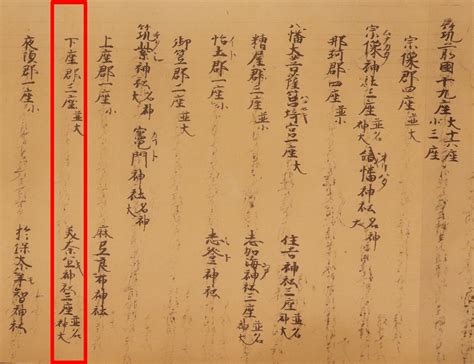 筑前國十九座 大十六座 小三座
宗像郡四座 並大
宗像神社三座 並名神大 織幡神社 名神大
那珂郡四座 並大
八幡大菩薩筥埼宮一座 住吉神社三座 並名神大
糟屋郡三座 並大 志加海神社三座 並名神大
怡土郡一座 小 志登神社
御笠郡二座 並大
筑紫神社 名神大 竈門神社 名神大
上座郡一座 小 麻氐良布神社
下座郡三座 並大 美奈宜神社三座 並名神大
夜須郡一座 小 於保奈牟智神社